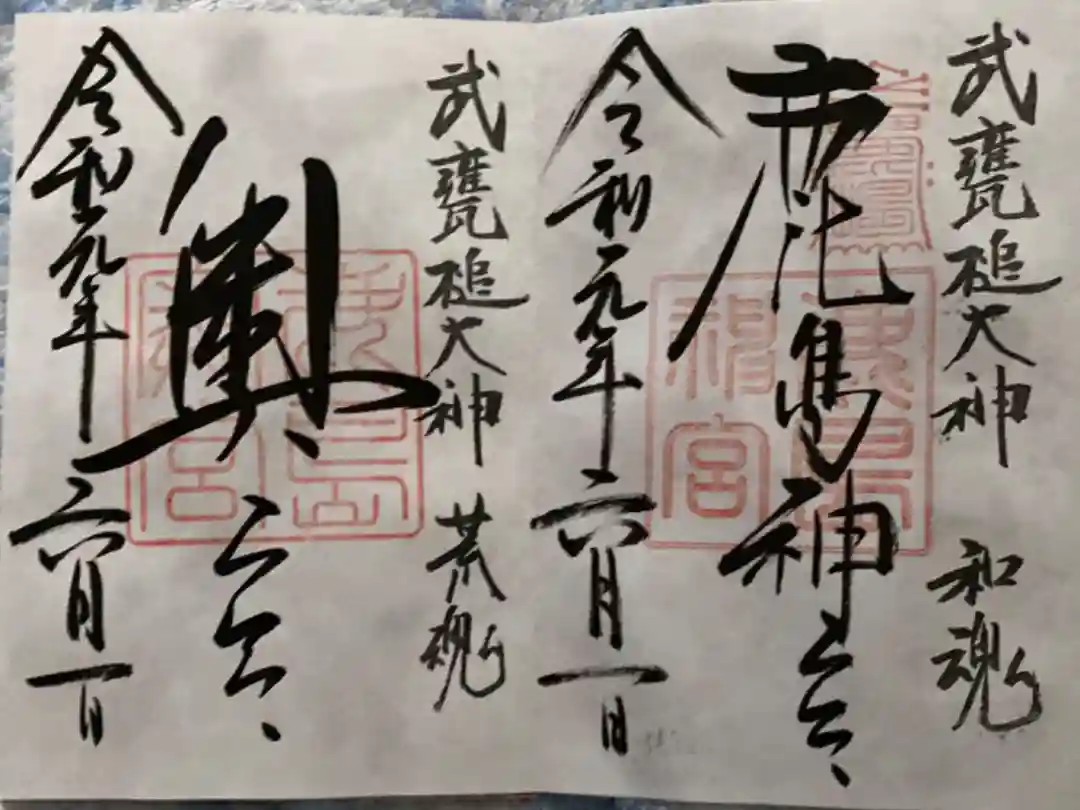 武甕槌大神 和魂
鹿島神宮
鹿島神宮
令和元年六月一日
武甕槌大神 荒魂
奥宮
令和元年六月一日